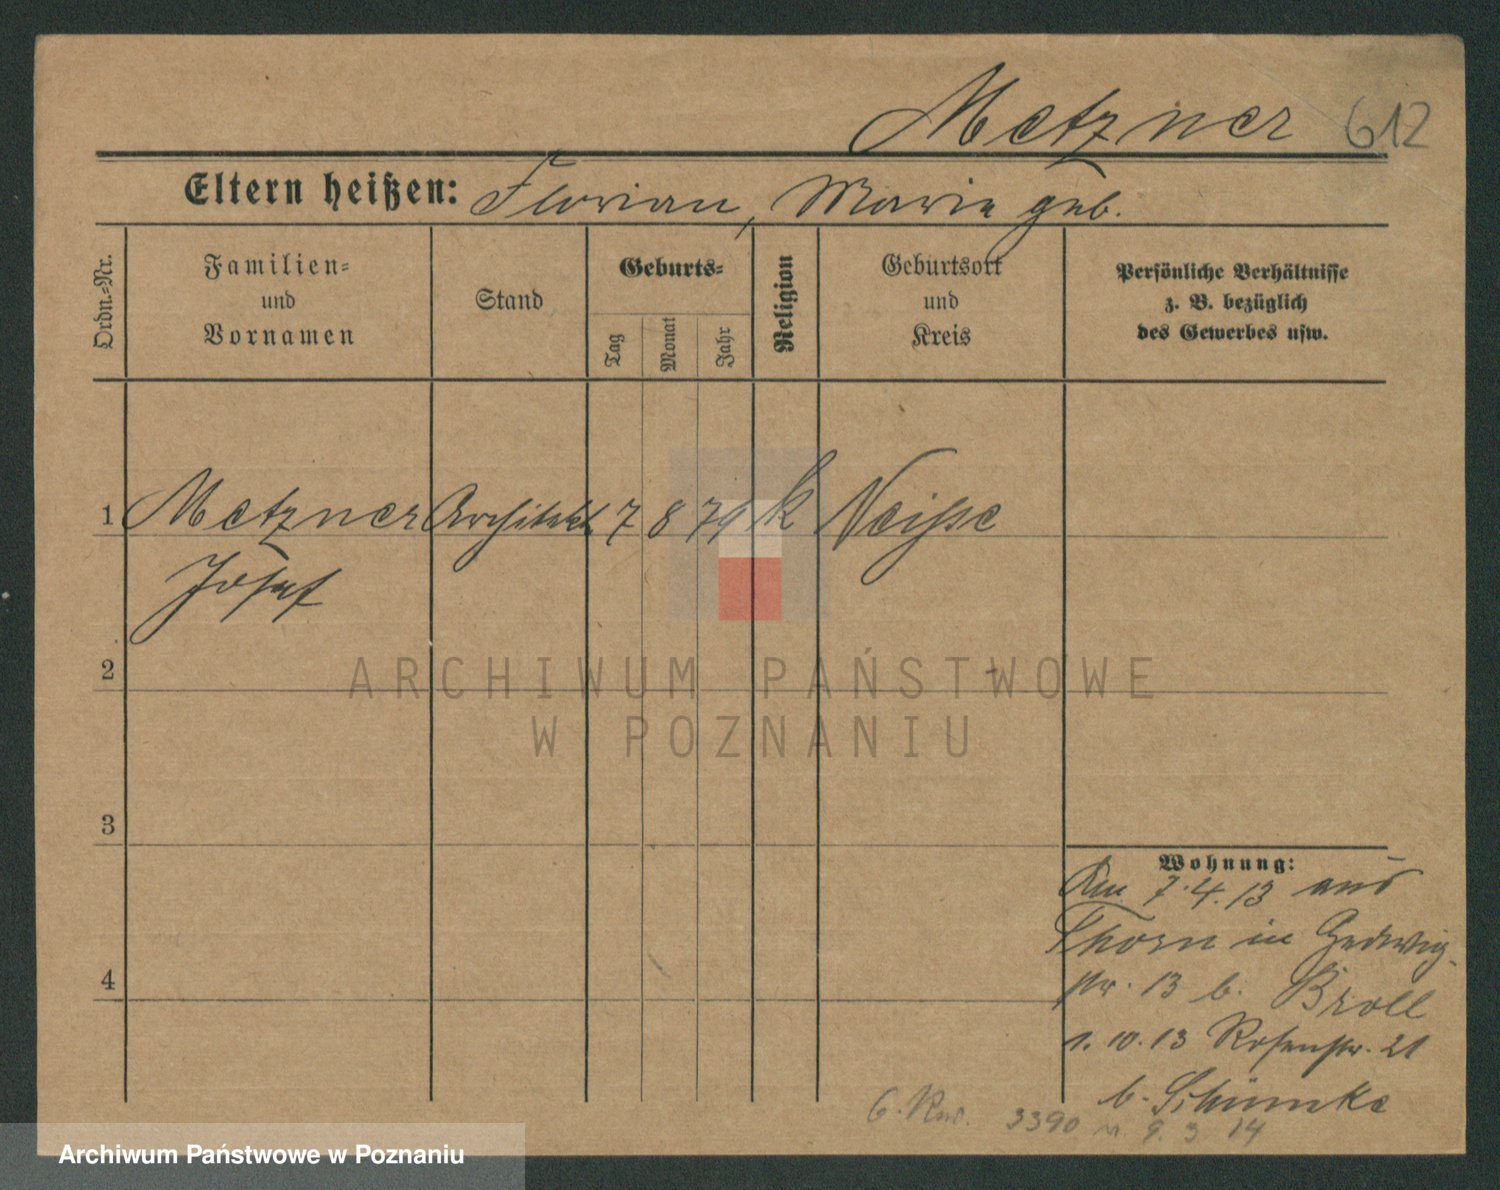 Metzner 612
Eltern heißen: Florian, Marie geb.
Ordn.-Nr.
Familien- und Vornamen
Stand
Geburts-
Tag
Monat
Jahr
Religion
Geburtsort und Kreis
Persönliche Verhältnisse
z. B. bezüglich
des Gewerbes usw.
1 Metzner Architekt 7 8 79 k Neisse
Josef
2
ARCHIWUM PAŃSTWOWE
W POZNANIU
3
Wohnung:
Am 7.4.13 aus
Thorn in Hedwig-
str. 13 b. Broll
4
1.10.13 Rosenstr. 21
b. Schümke
3390 9. 3 14
Archiwum Państwowe w Poznaniu